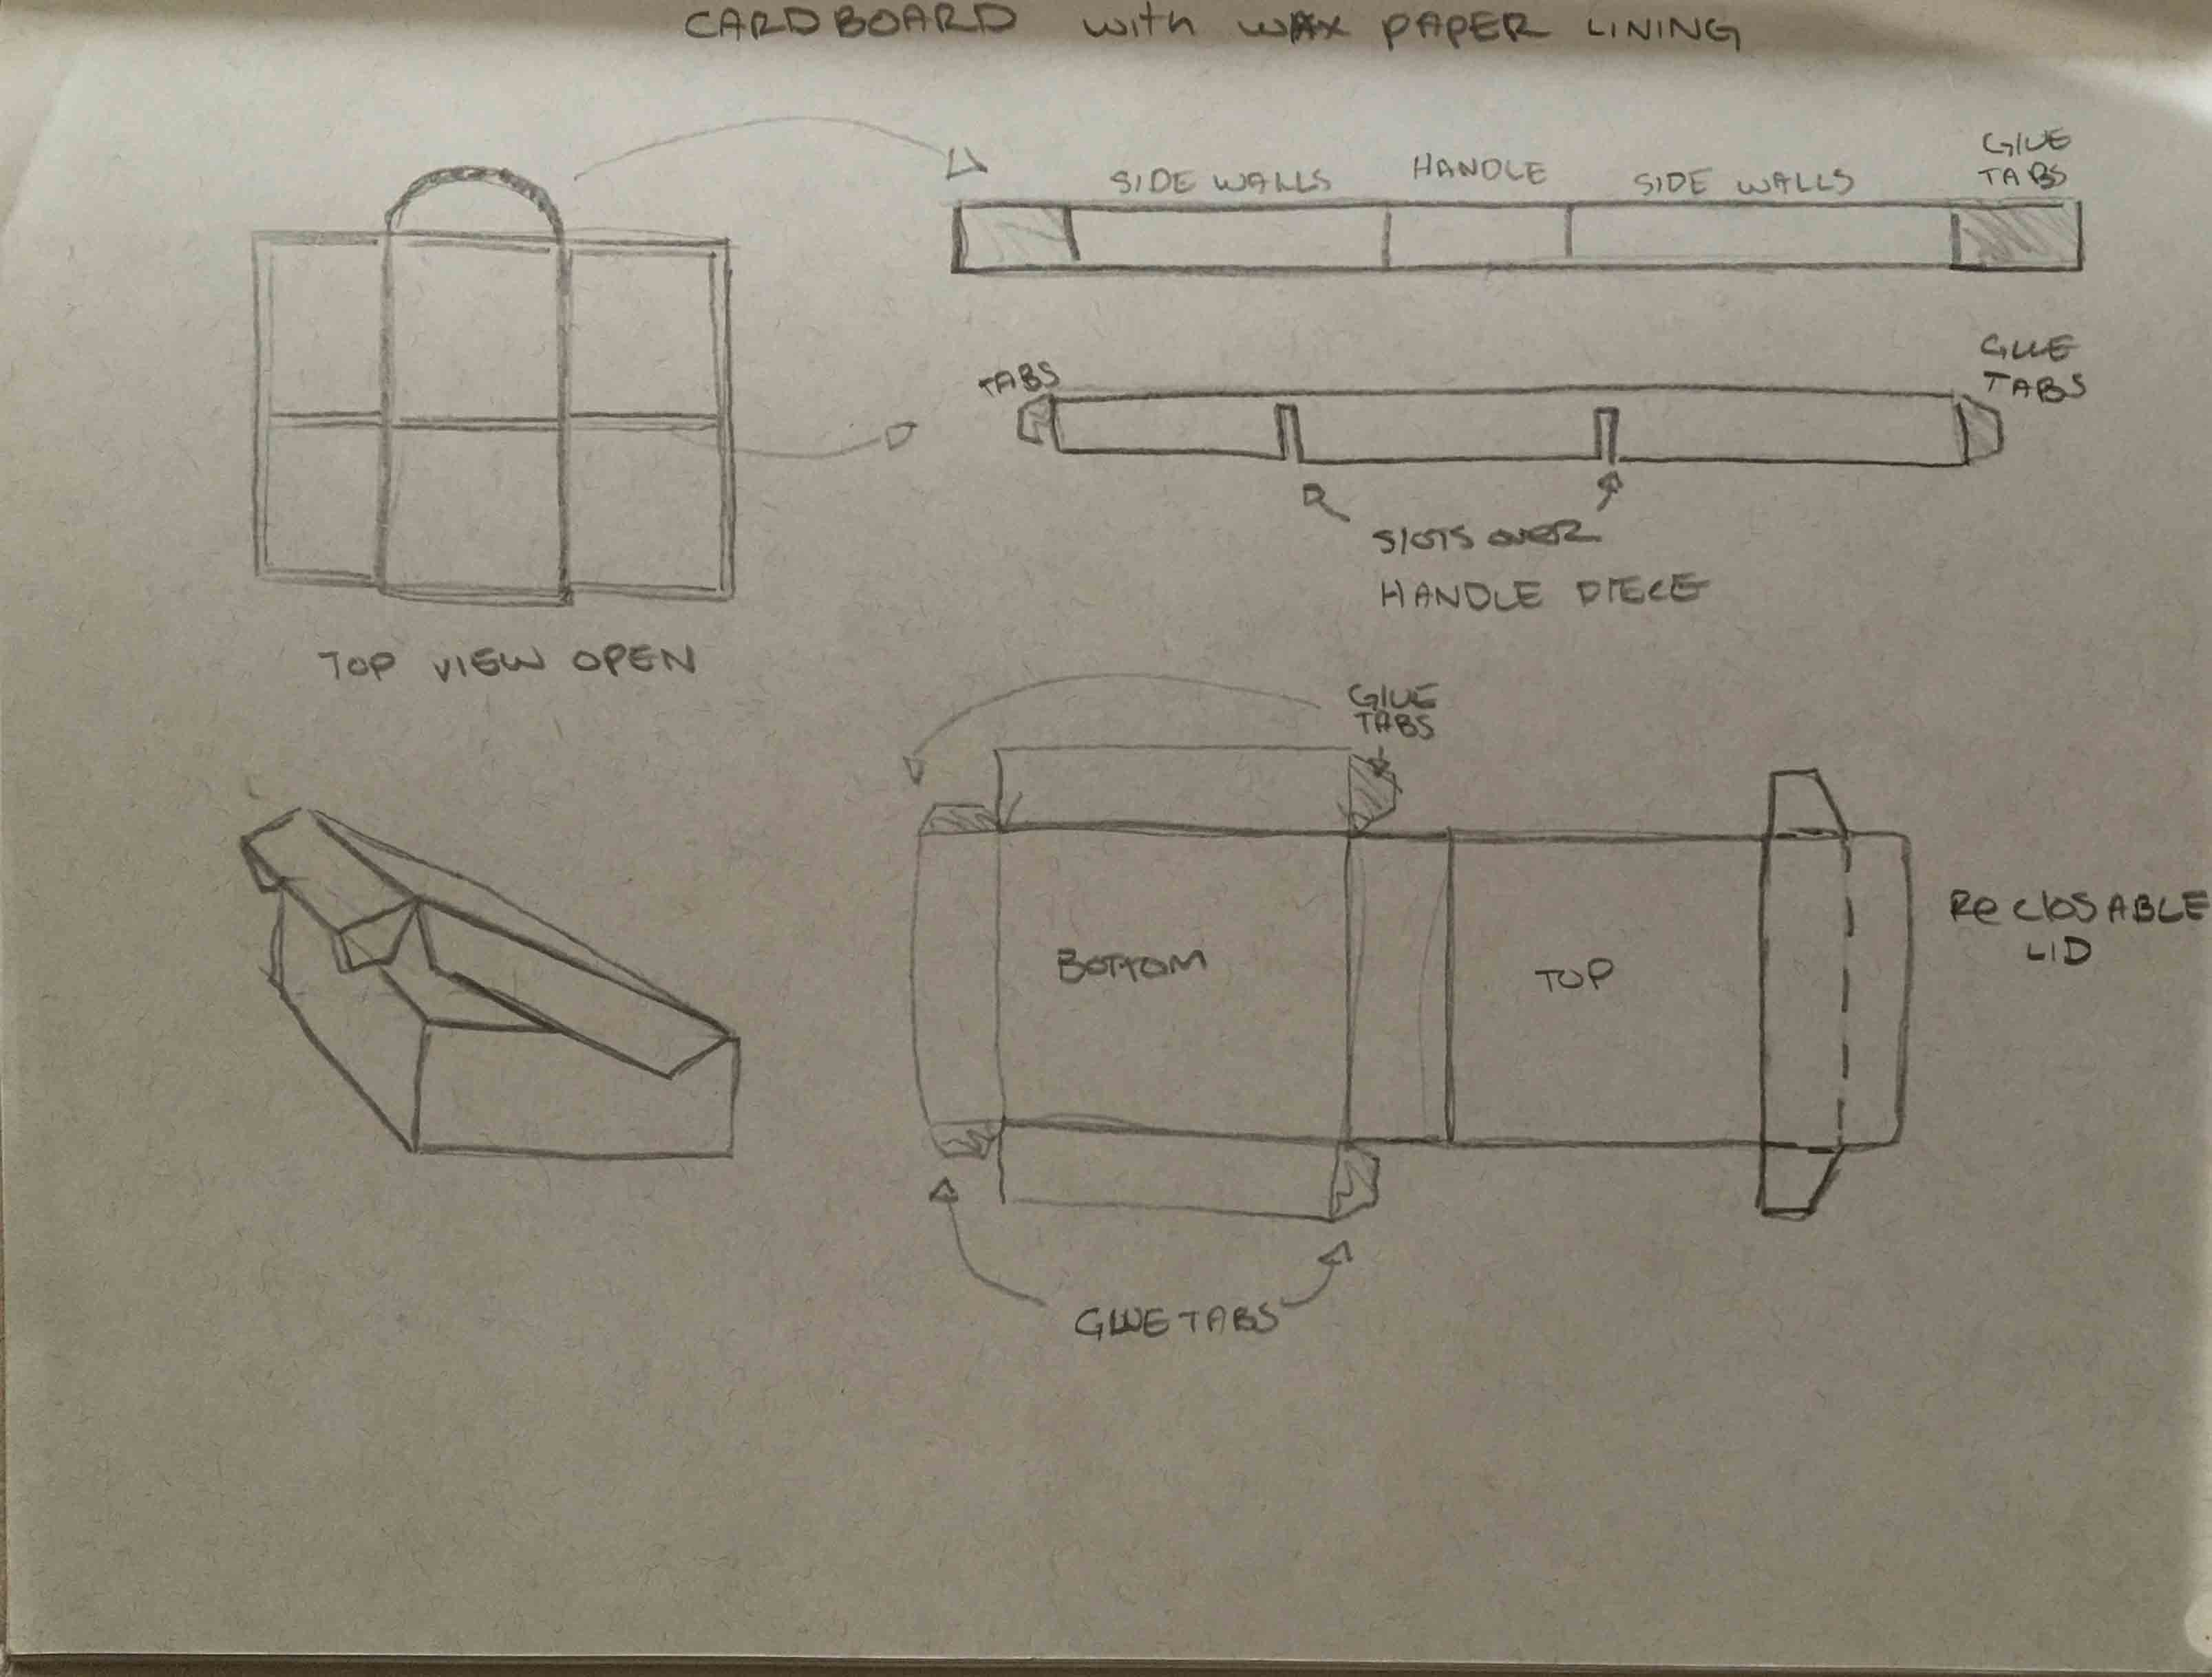 CARDBOARD with WAX PAPER LINING
SIDE WALLS
HANDLE
SIDE WALLS
GLUE
TABS
TABS
GLUE
TABS
SLOTS OVER
HANDLE PIECE
TOP VIEW OPEN
GLUE
TABS
BOTTOM
TOP
Re closABLE
LID
GLUE TABS